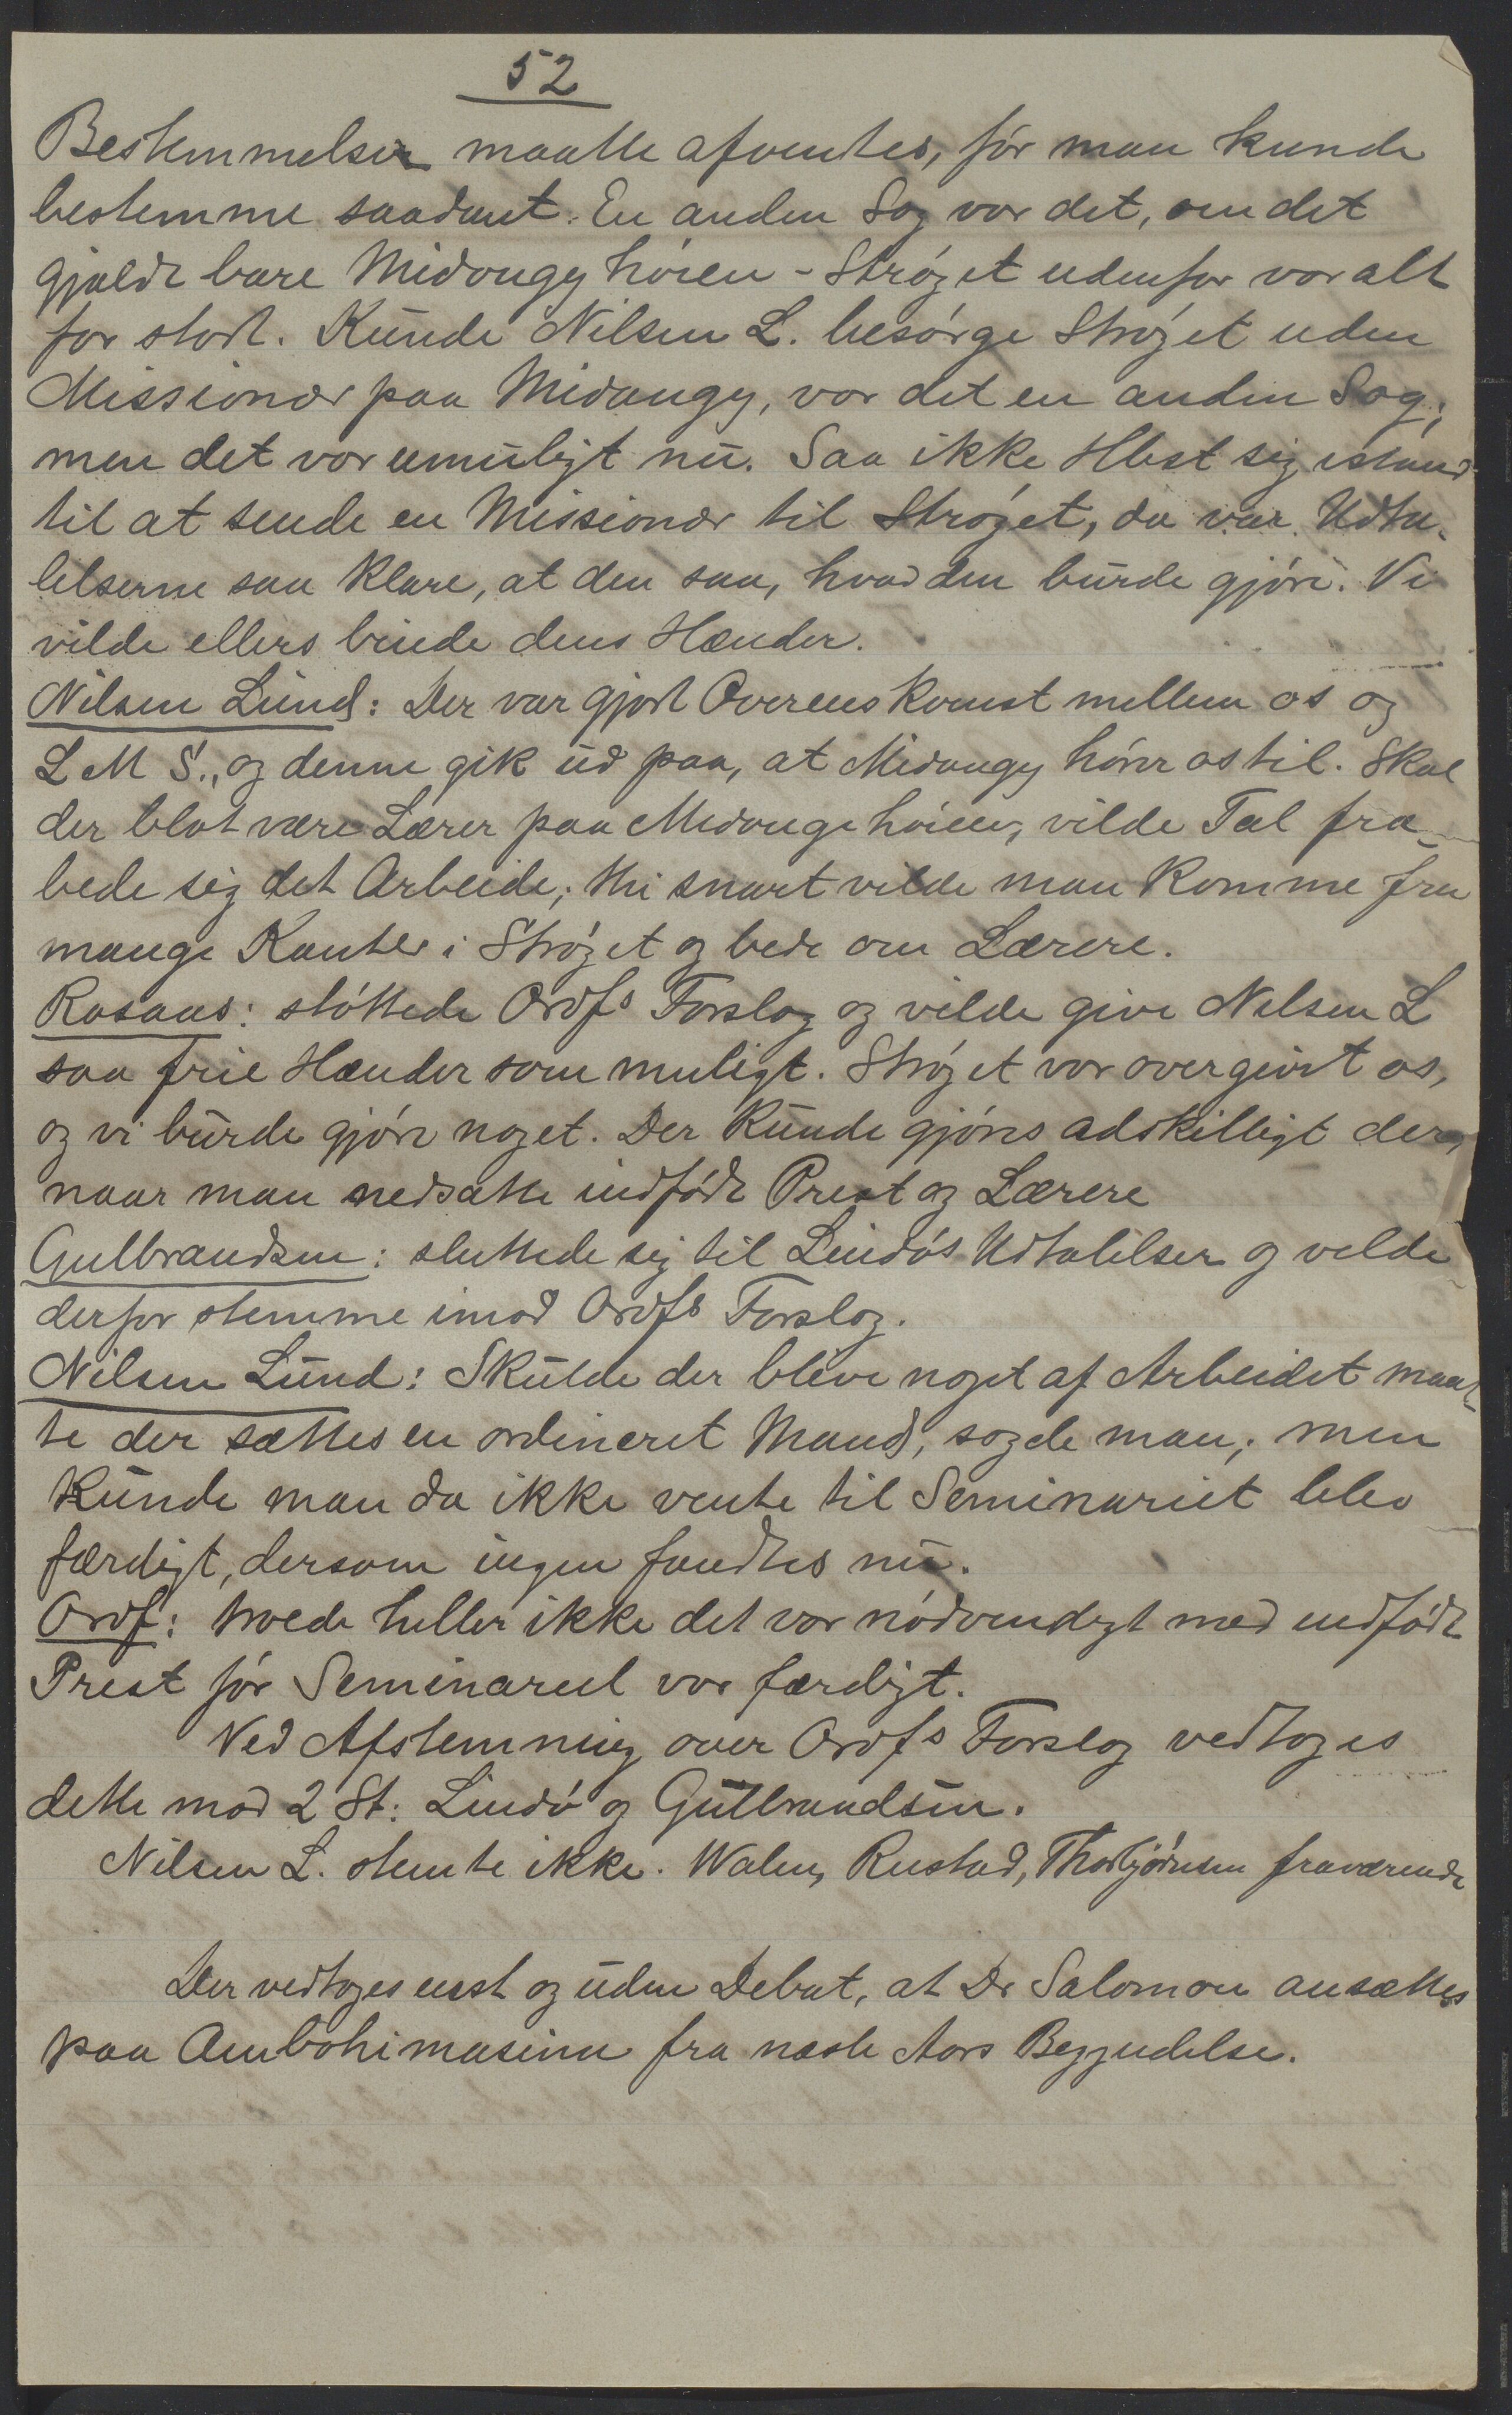 52
Bestemmelser maatte afventes, før man kunde
bestemme saadant. En anden Sag var det, om det
gjaldt bare Midongy høien - Strøget udenfor var alt
for stort. Kunde Nilsen L. besørge Strøget uden
Missionær paa Midongy, var det en anden Sag;
men det var umuligt nu. Saa ikke Hbst sig istand
til at sende en Missionær til Strøget, da var Udta-
lelserne saa klare, at den saa, hvad den burde gjøre. Vi
vilde ellers binde dens Hænder.
Nilsen Lund: Der var gjort Overenskomst mellem os og
L M S., og denne gik ud paa, at Midongy hører os til. Skal
der blot være Lærer paa Midongehøien, vilde Tal fra-
bede sig det Arbeide; thi snart vilde man komme fra
mange Kanter i Strøget og bede om Lærere.
Rosaas: støttede Ordfs Forslag og vilde give Nilsen L
saa frie Hænder som muligt. Strøget var overgivet os,
og vi burde gjøre noget. Der kunde gjøres adskilligt der,
naar man nedsatte indfødt Prest og Lærere
Gulbrandsen: sluttede sig til Lindøs Udtalelser og vilde
derfor stemme imod Ordfs Forslag.
Nilsen Lund: Skulde der blive noget af Arbeidet maat-
te der sættes en ordineret Mand, sagde man; men
kunde man da ikke vente til Seminariet blev
færdigt, dersom ingen fandtes nu.
Ordf: troede heller ikke det var nødvendigt med indfødt
Prest før Seminariet var færdigt.
Ved Afstemning over Ordfs Forslag vedtoges
dette mod 2 St: Lindø og Gulbrandsen.
Nilsen L. stemte ikke. Walen, Rustad, Thorbjørnsen fraværende
Der vedtoges enst og uden Debat, at Dr Salomon ansættes
paa Ambohimasina fra næste Aars Begyndelse.